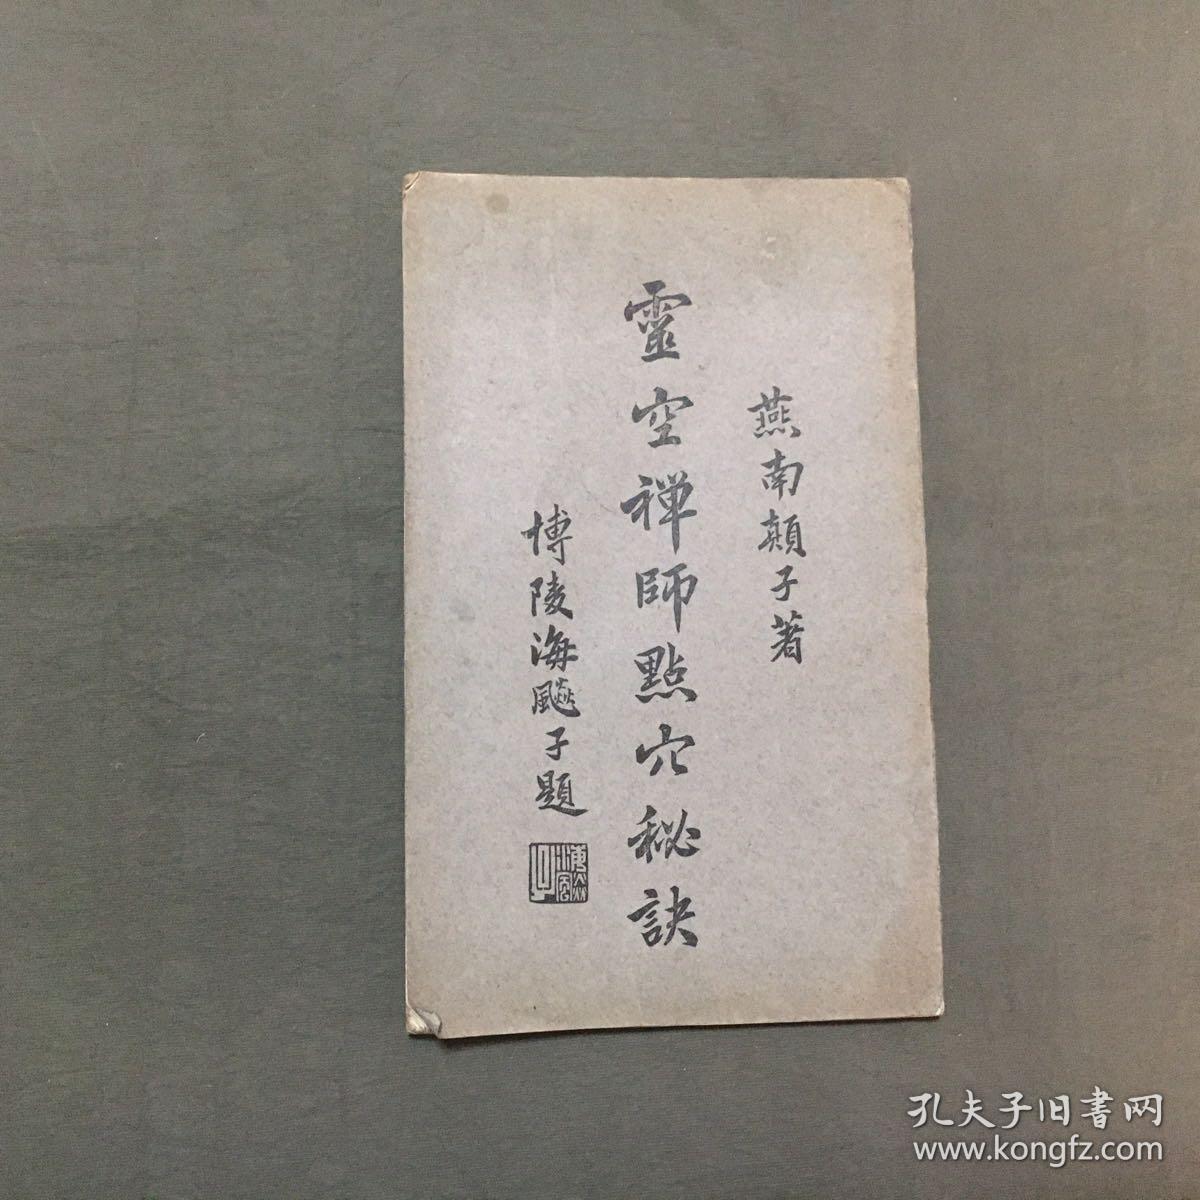 燕南顛子著
靈空禅師點穴秘訣
博陵海飈子題
孔夫子旧書网
www.kongfz.com